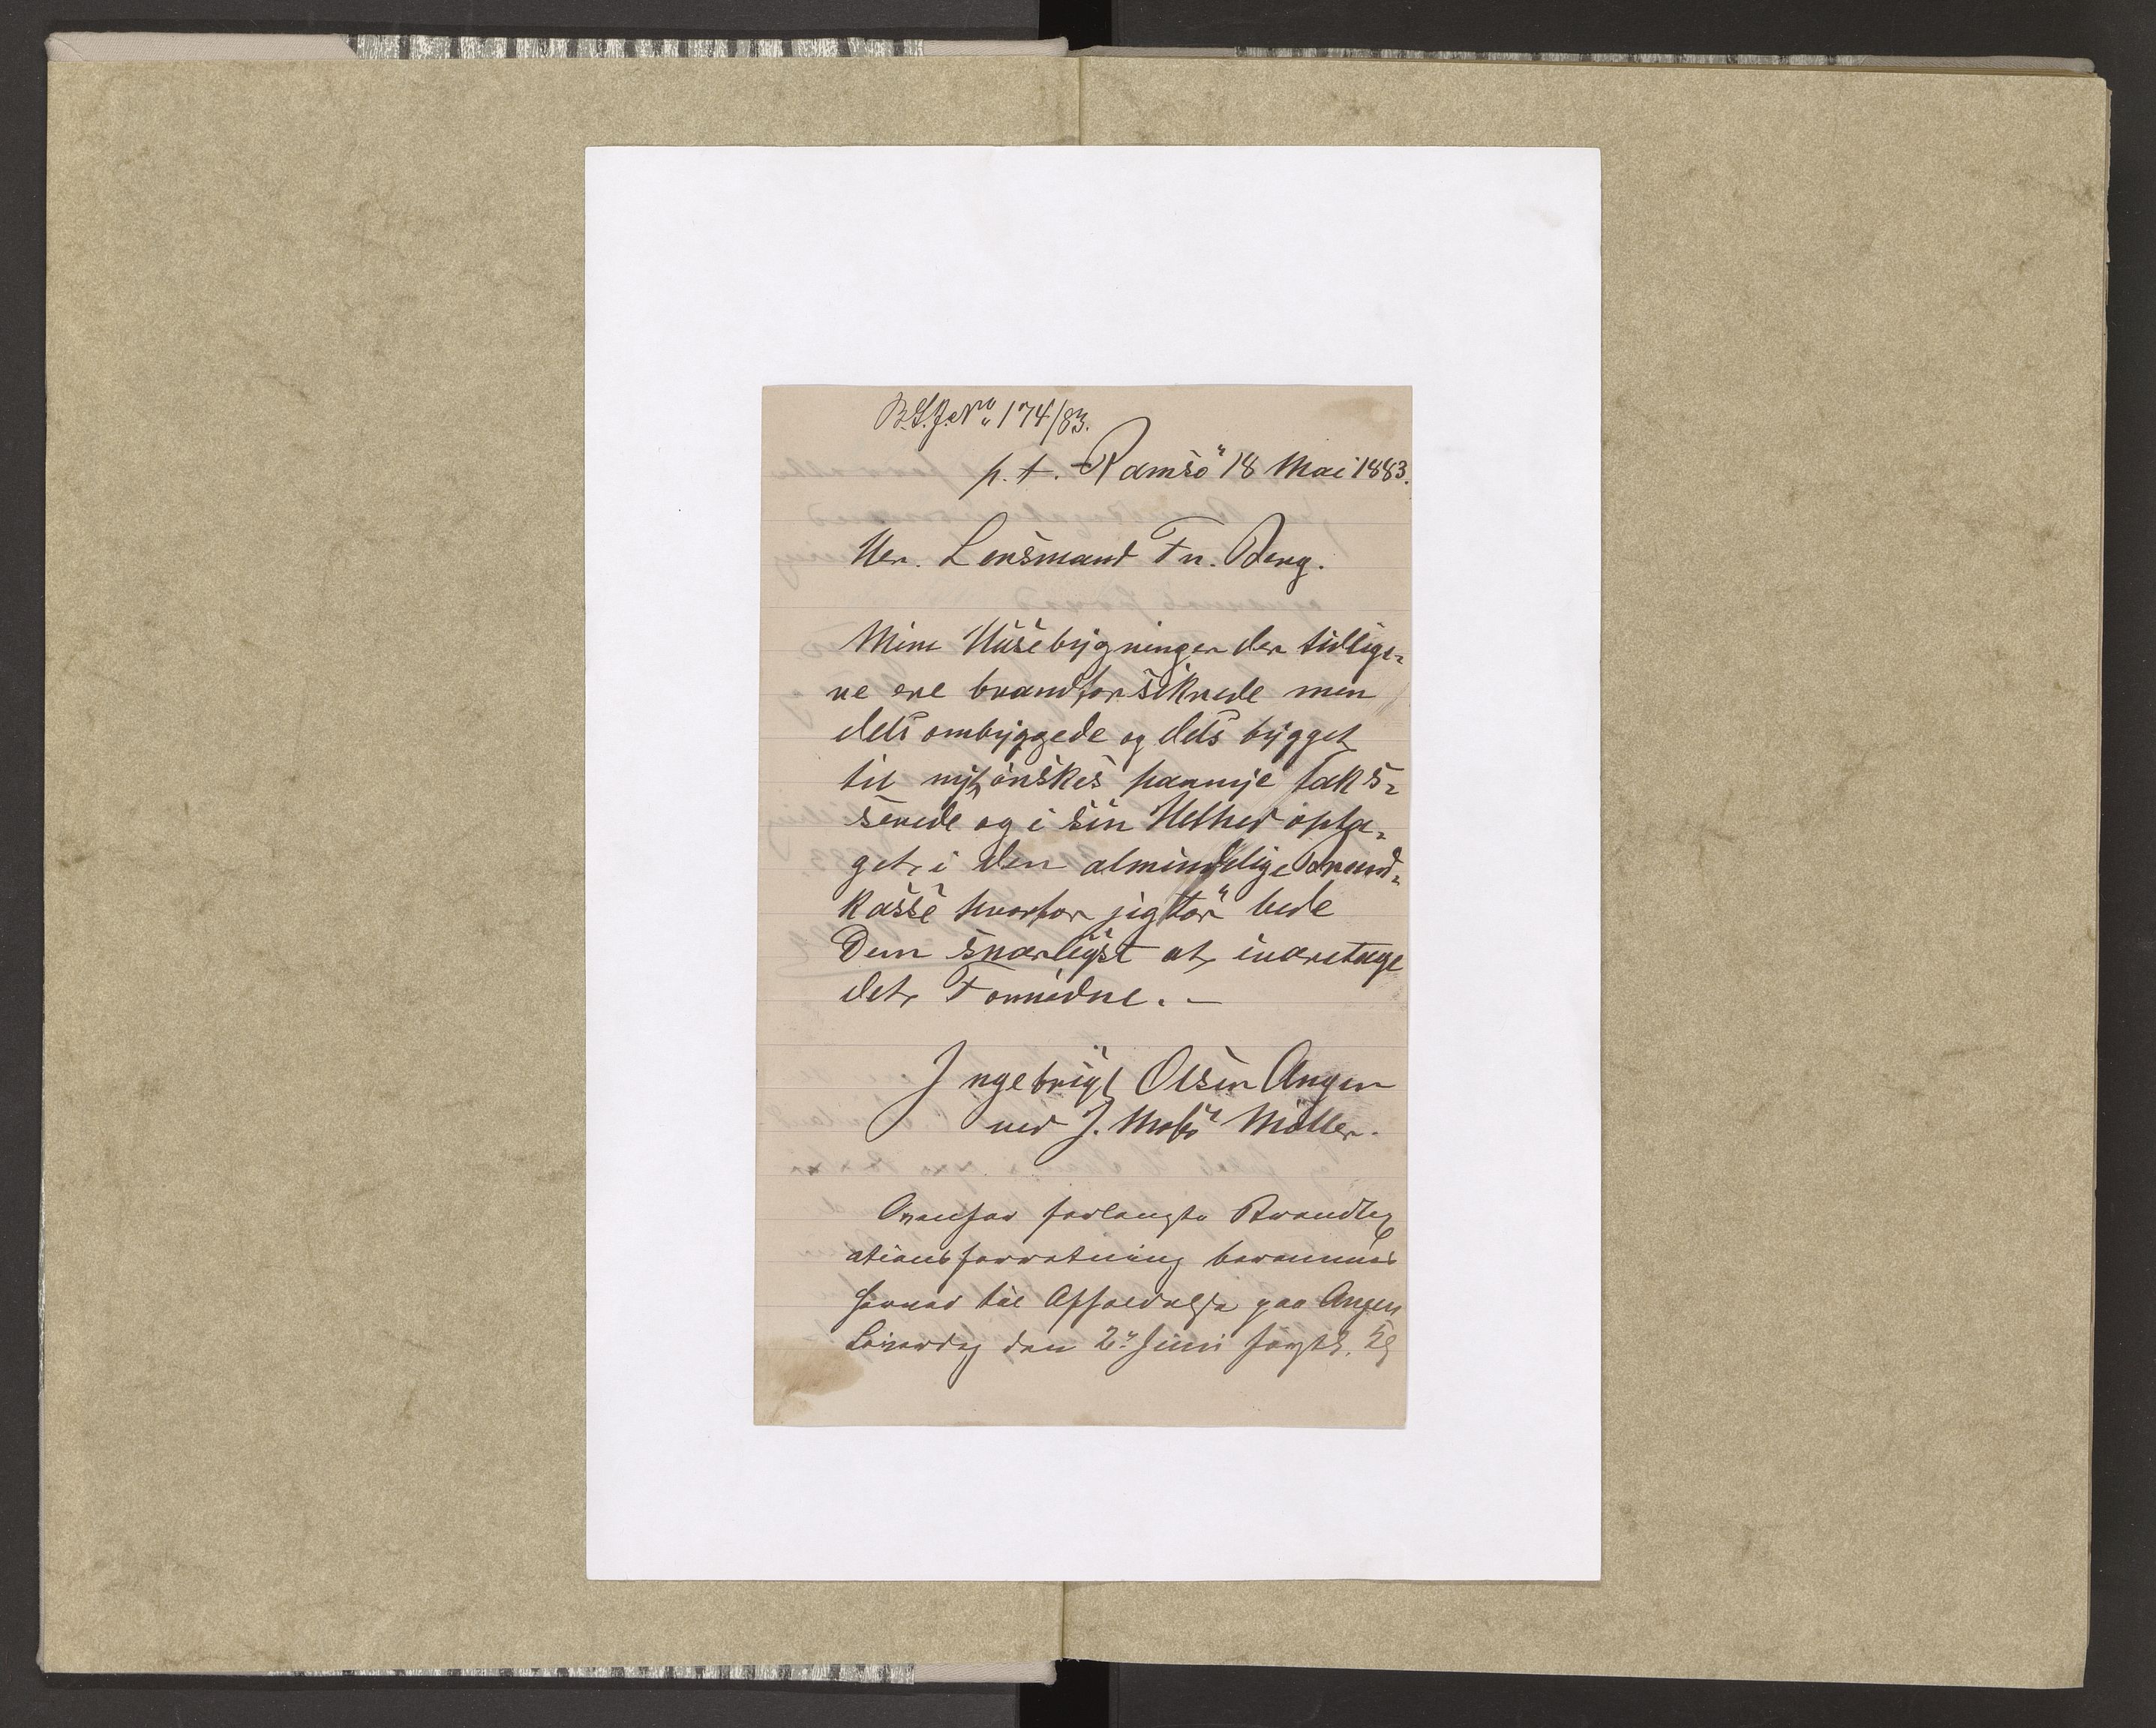 B.L.J.No 174/83.
p. t. Ramsö 18 Mai 1883.
Her. Lensmand Fr. Berg.
Mine Husebygninger der tidlige-
re ere brandforsikrede men
dels ombyggede og dels bygget
til nyt, önskes paanye taks-
serede og i sin Helhed opta-
get i den almindelige Brand-
kasse hvorfor jeg tör bede
Dem snarligst at ivaretage
det Fornödne. -
Ingebrigt Olsen Angen
ved J. Moksö Möller.
Ovenfor forlangte Brandtax
ationsforretning berammes
herved til Afholdelse paa Angen
Löverdag den 2den Juni förstk.